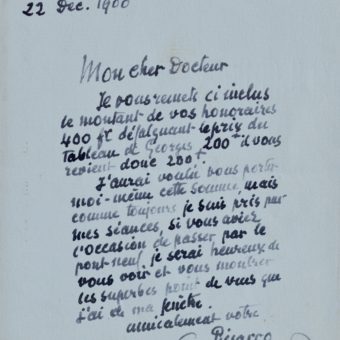 22 Dec. 1900
Mon cher Docteur
Je vous remets ci inclus
le montant de vos honoraires
400 ft défalquant le prix du
Tableau de Georges 200 ft il vous
revient donc 200 f.
J'aurai voulu vous porter
moi-même cette somme, mais
comme toujours je suis pris par
mes séances, si vous aviez
l'occasion de passer par le
pont neuf, je serai heureux de
vous voir et vous montrer
les superbes point de vues que
j'ai de ma fenêtre.
amicalement votre
Pissarro